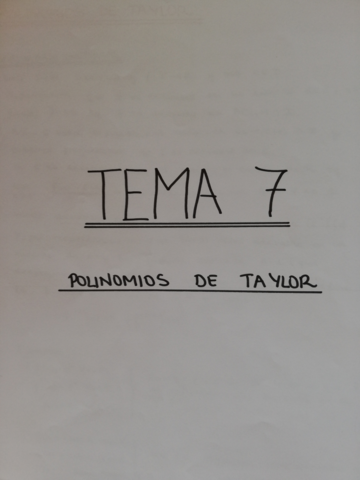 TEMA 7
POLINOMIOS DE TAYLOR